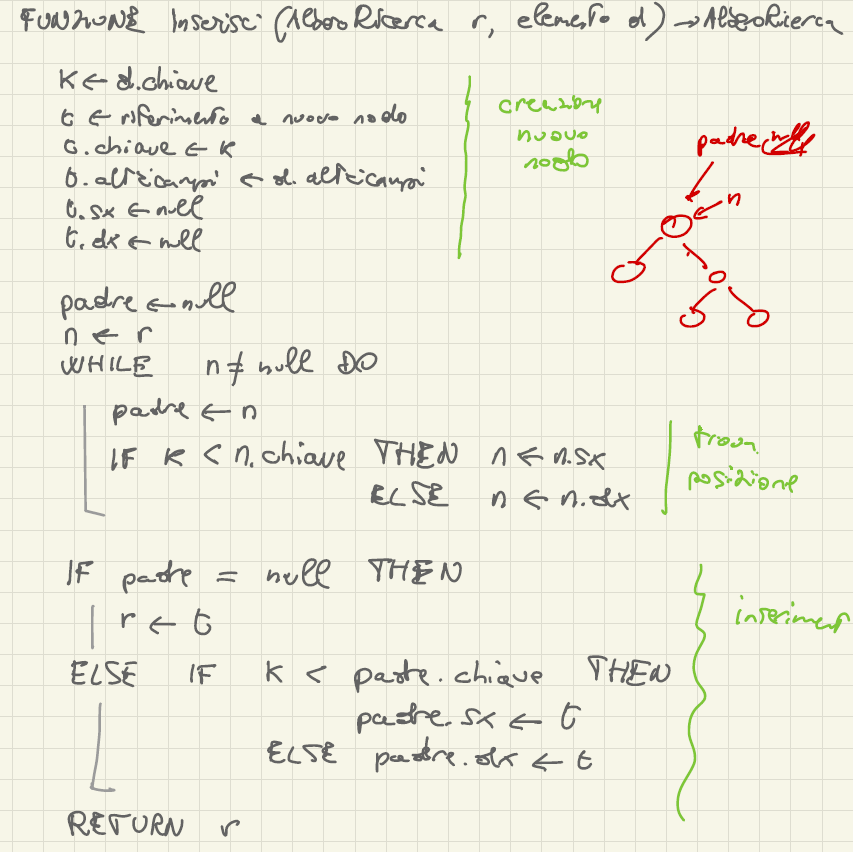 FUNZIONE Inserisci (AlberoRicerca r, elemento d) → AlberoRicerca
K ← d.chiave
t ← riferimento a nuovo nodo
t.chiave ← k
t.altricampi ← d.altricampi
t.sx ← null
t.dx ← null
creazione
nuovo
nodo
padre null
n
padre ← null
n ← r
WHILE n ≠ null DO
padre ← n
IF k < n.chiave THEN n ← n.sx
ELSE n ← n.dx
trova
posizione
IF padre = null THEN
r ← t
ELSE IF k < padre.chiave THEN
padre.sx ← t
ELSE padre.dx ← t
RETURN r
inseriment